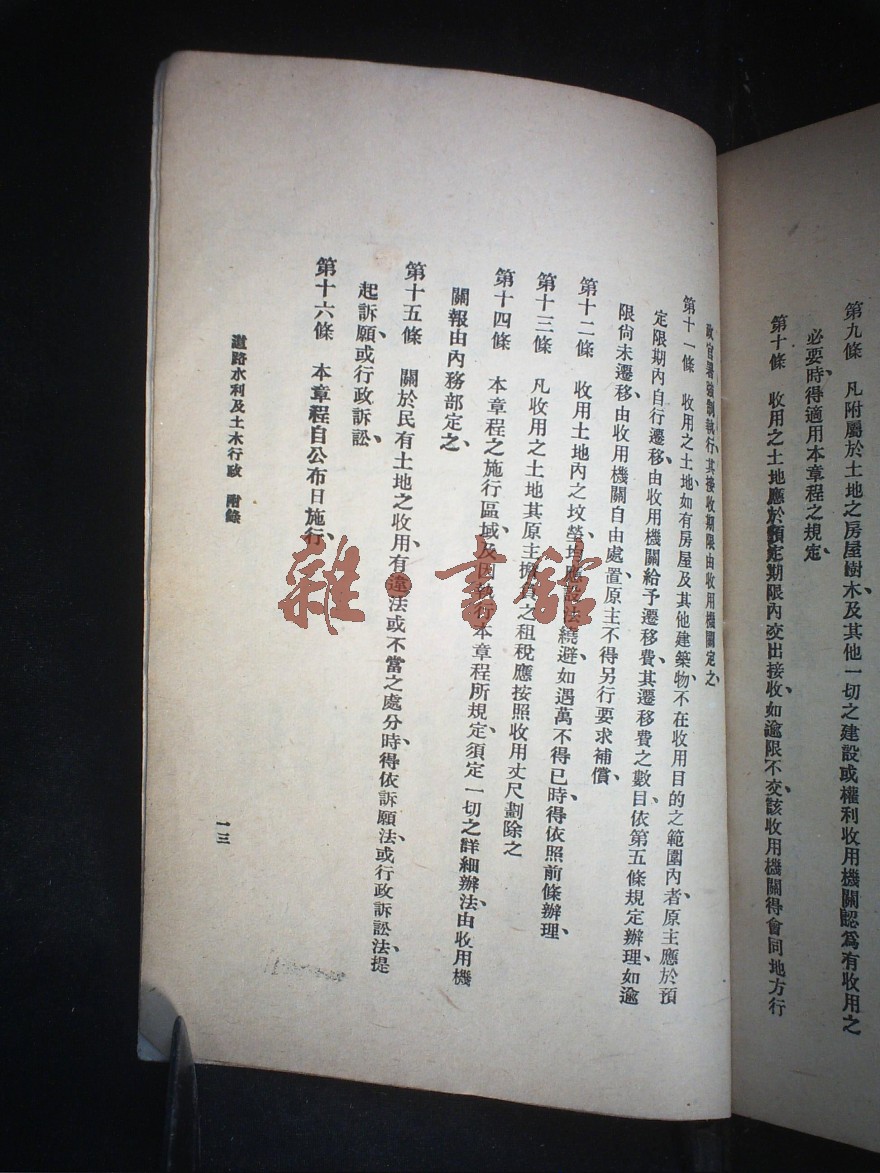 第九條　凡附屬於土地之房屋樹木及其他一切之建設或權利收用機關認爲有收用之
必要時、得適用本章程之規定、
第十條　收用之土地應於預定期限內交出接收、如逾限不交、該收用機關得會同地方行
政官署强制執行、其接收期限由收用機關定之、
第十一條　收用之土地、如有房屋及其他建築物、不在收用目的之範圍內者、原主應於預
定限期內自行遷移、由收用機關給予遷移費、其遷移費之數目、依第五條規定辦理、如逾
限尙未遷移、由收用機關自由處置、原主不得另行要求補償、
第十二條　收用土地內之坟塋、均應設法繞避、如遇萬不得已時、得依照前條辦理、
第十三條　凡收用之土地其原主擔負之租稅應按照收用丈尺劃除之
第十四條　本章程之施行區域、及因執行本章程所規定、須定一切之詳細辦法、由收用機
關報由內務部定之、
第十五條　關於民有土地之收用、有違法或不當之處分時、得依訴願法、或行政訴訟法、提
起訴願或行政訴訟、
第十六條　本章程自公布日施行、
道路水利及土木行政　附錄
一三
雜·書館